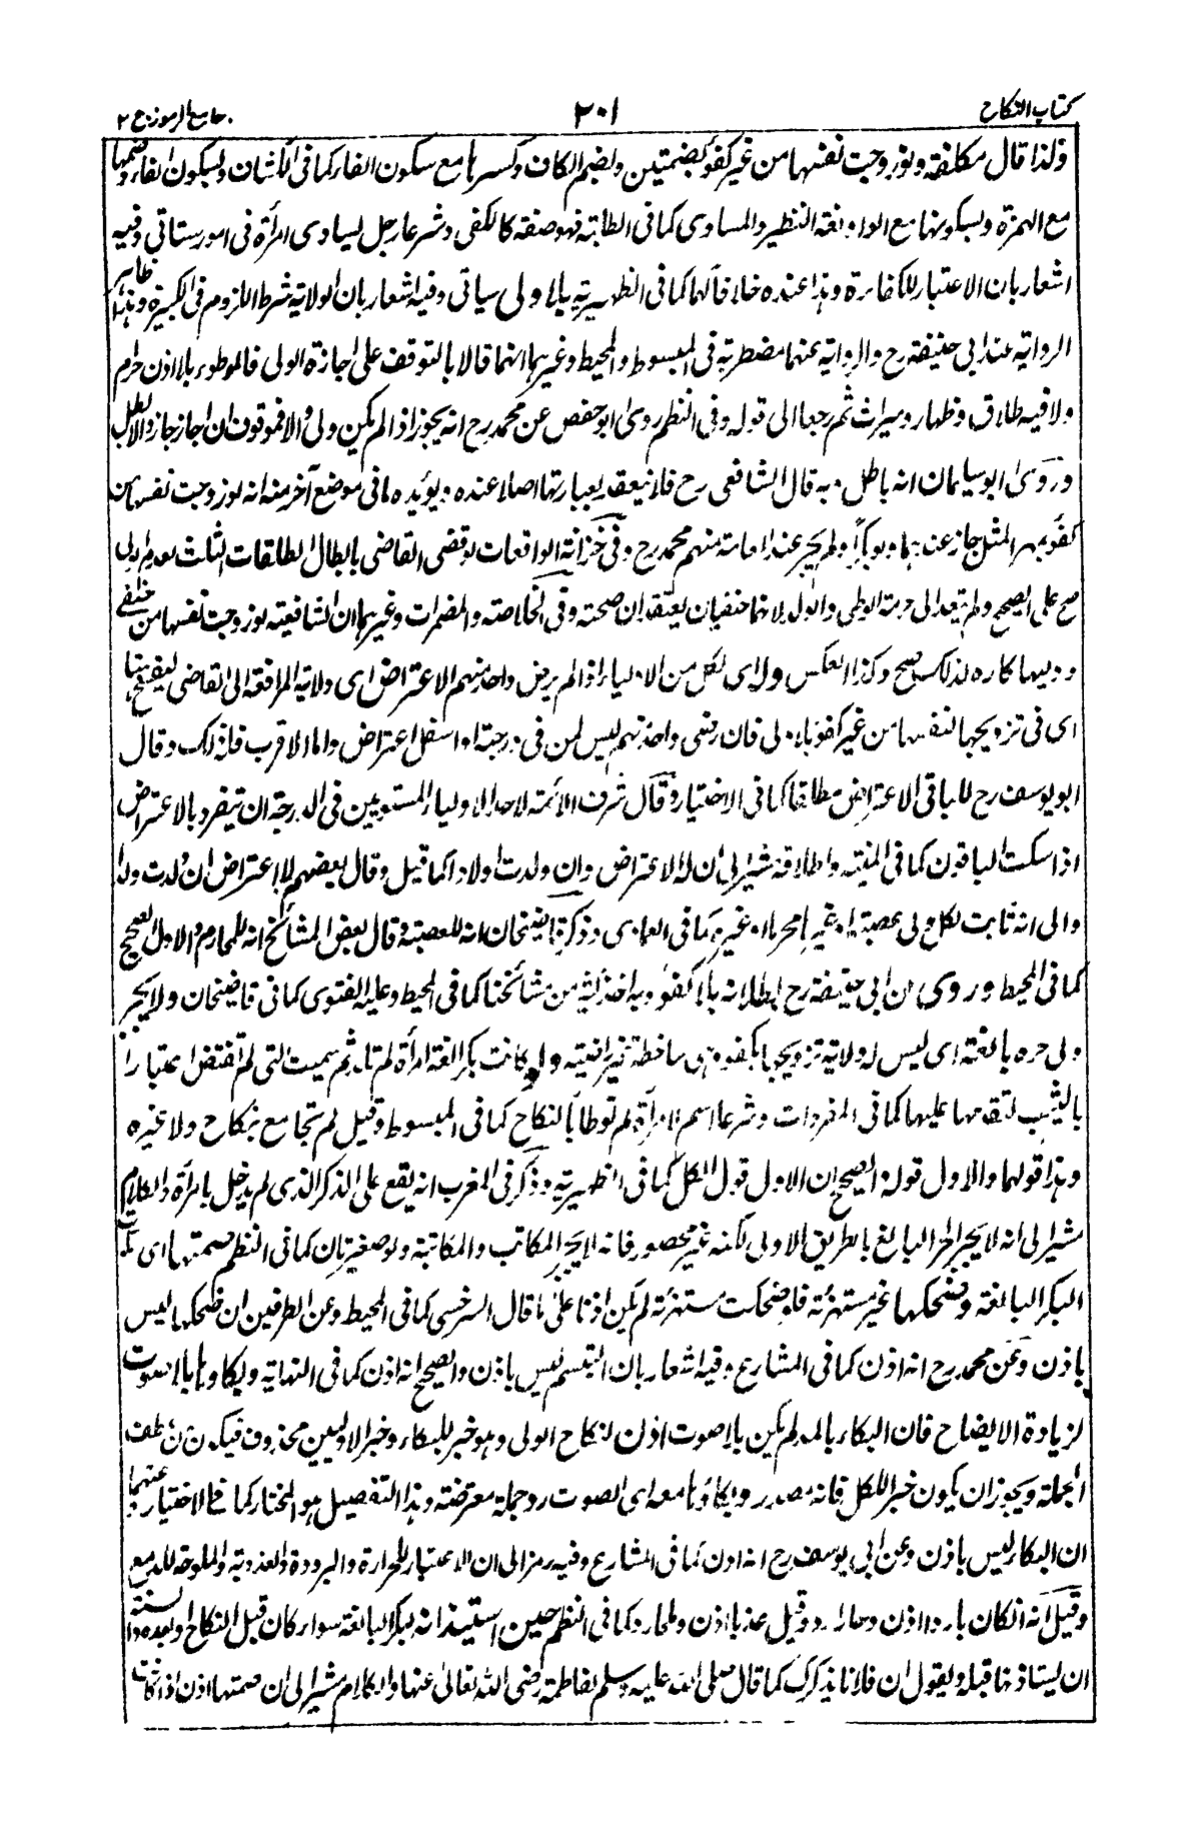 كتاب النكاح
٢٠١
جامع الرموز ج ٢
ولذا قال مكلفة ولو زوجت نفسها من غير كفؤ بضمتين وبضم الكاف وكسرها مع سكون الفاء كما فى الكشاف وبسكون الفاء وضمها
مع الهمزة وبسكونها مع الواو لغة النظير والمساوى كما فى الطلبة فهو صفة كالكفى وشرعا رجل يساوى امرأة فى امور ستاتى وفيه
اشعار بان الاعتبار للكفاءة وهذا عنده خلافا لهما كما فى الظهيرية بلا ولى سياتى وفيه اشعار بان الولاية شرط اللزوم فى الكبيرة وهذا ظاهر
الرواية عند ابى حنيفة رح والرواية عنهما مضطربة فى المبسوط والمحيط وغيرهما انهما قالا بالتوقف على اجازة الولى فالموطوء بلا اذن حرام
ولا فيه طلاق وظهار وميراث ثم رجعا الى قوله وفى النظم روى ابو حفص عن محمد رح انه يجوز اذا لم يكن ولى والا فموقوف ان اجاز جاز والا بطل
وروى ابو سليمان انه باطل وبه قال الشافعى رح فلا ينعقد بعبارتها اصلا عنده ويؤيده ما فى موضع آخر منه انه لو زوجت نفسها من
كفؤ بمهر المثل جاز عندهما ولو بكرا ولم يجز عند عامة منهم محمد رح وفى خزانة الواقعات لو قضى القاضى بابطال الطلقات الثلث بعدم الولى
صح على الصحيح ولم يتعد الى حرمة الوطى والولد لانهما حنفيان يعتقدان صحته وفى الخلاصة والمضمرات وغيرهما ان الشافعية لو زوجت نفسها من حنفى
ووليها كاره لذلك صح وكذا العكس وله اى لكل من الاولياء اذا لم يرض واحد منهم الاعتراض اى ولاية المرافعة الى القاضى ليفسخ هنا
اى فى تزويجها لنفسها من غير كفؤ بلا ولى فان رضى واحد منهم ليس لمن فى درجته او اسفل اعتراض واما الاقرب فله ذلك وقال
ابو يوسف رح للباقى الاعتراض مطلقا كما فى الاختيار وقال شرف الائمة لاحد الاولياء المستويين فى الدرجة ان يتفرد بالاعتراض
اذا سكت الباقون كما فى المنية واطلاقه مشير الى ان له الاعتراض وان ولدت اولادا كما قيل وقال بعضهم لا اعتراض ان ولدت ولدا
والى انه ثابت لكل ولى عصبة او غيره محرما او غيره كما فى العمادى وذكر قاضيخان انه للعصبة وقال بعض المشائخ انه للمحارم والاول الصحيح
كما فى المحيط وروى عن ابى حنيفة رح بطلانه بلا كفؤ وبه اخذ كثير من مشائخنا كما فى المحيط وعليه الفتوى كما فى قاضيخان ولا يجبر
ولى حرة بالغة اى ليس له ولاية تزويجها بكفؤ وهى ساخطة غير راضية ولو كانت بكرا لغة امرأة لم تلد ثم سميت التى لم تفتض اعتبارا
بالثيب لتقدمها عليها كما فى المفردات وشرعا اسم امرأة لم توطأ بالنكاح كما فى المبسوط وقيل لم تجامع بنكاح ولا غيره
وهذا قولهما والاول قوله والصحيح ان الاول قول الكل كما فى الظهيرية وذكر فى المغرب انه يقع على الذكر الذى لم يدخل بامرأة والكلام
مشير الى انه لا يجبر الحر البالغ بالطريق الاولى لكنه غير محصور فانه لا يجبر المكاتب والمكاتبة ولو صغيرين كما فى النظم صمتها اى سكت
البكر البالغة وضحكها غير مستهزئة فلو ضحكت مستهزئة لم يكن اذنا على ما قال السرخسى كما فى المحيط وعن الطرفين ان ضحكها ليس
باذن وعن محمد رح انه اذن كما فى المشارع وفيه اشعار بان التبسم ليس باذن والصحيح انه اذن كما فى النهاية وبكاؤها بلا صوت
لزيادة الايضاح فان البكاء بالمد لم يكن بلا صوت اذن لنكاح الولى وهو خبر للبكاء وخبر الاوليين محذوف فيكون من عطف
الجملة ويجوز ان يكون خبر اللكل فانه مصدر وبكاؤها معه اى الصوت رد جملة معترضة وهذا التفصيل هو المختار كما فى الاختيار وعنهما
ان البكاء ليس باذن وعن ابى يوسف رح انه اذن كما فى المشارع وفيه رمز الى ان لا اعتبار للحرارة والبرودة والعذوبة والملوحة للدمع
وقيل انه ان كان باردا اذن وحارا رد وقيل عذبا اذن وملحا رد كما فى النظم حين استيذانه للبكر البالغة سواء كان قبل النكاح او بعده والسنة
ان يستاذنها قبله ويقول ان فلانا يذكرك كما قال صلى الله عليه وسلم لفاطمة رضى الله تعالى عنها والكلام مشير الى ان صمتها اذن اذا كانت